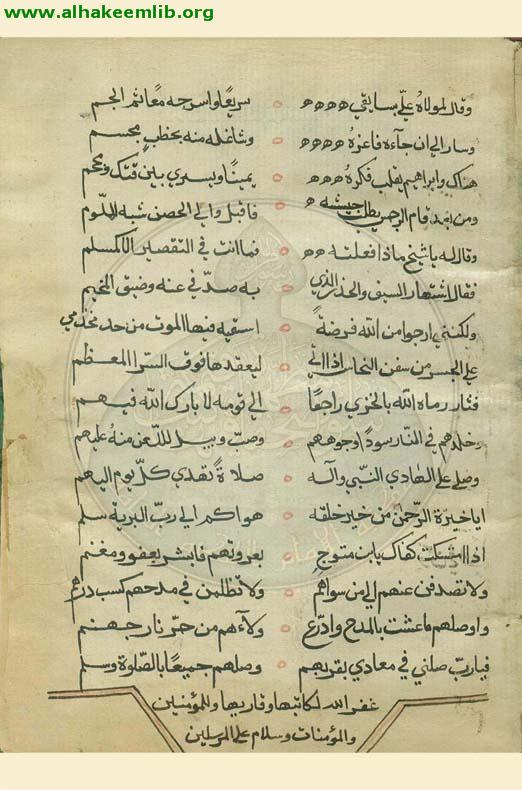 www.alhakeemlib.org
وقال لمولاه علي سابقي سريعا واسرجه معا ثم الجم
وسار الي ان جآءه فاعزة وشاغله منه بخطب مجسم
هناك وابراهيم يقلب فكره يمينا ويسري بين
ومن بعد قام الرجس يطلب جيشه فاقبل والي الحصن شبه الملوم
وقال له يا شيخ ماذا فعلته فما انت في التقصير الا كمسلم
فقال اشتهار السيف والحذر الذي به صد في عنه وضيق المخيم
ولكنني ارجوا من الله فرصة اسقيه فيها الموت من حد مخذمي
علي الجسر من سفن النحاس اذا اتي ليعقدها فوق السترا المعظم
فثار رماه الله بالخزي راجعا الي قومه لا بارك الله فيهم
وخلدهم في النار سودا وجوههم وصب وبيل اللعن منه عليهم
وصلي علي الهادي النبي وآله صلاة تهدي كل يوم اليهم
ايا خيرة الرحمن من خير خلقه هواكم الي رب البرية سلم
اذا امسكت كفاك يا بن متوج بعروتهم فابشر بعفو ومغنم
ولا تصدفن عنهم الي من سواهم ولا تظلمن في مدحهم كسب درهم
واوصلهم ما عشت بالمدح وادرع ولآءهم من حر نار جهنم
فيا رب صلني في معادي بقربهم وصلهم جميعا بالصلوة وسلم
غفر الله لكاتبها وقاريها وللمؤمنين
والمؤمنات وسلام علي المرسلين